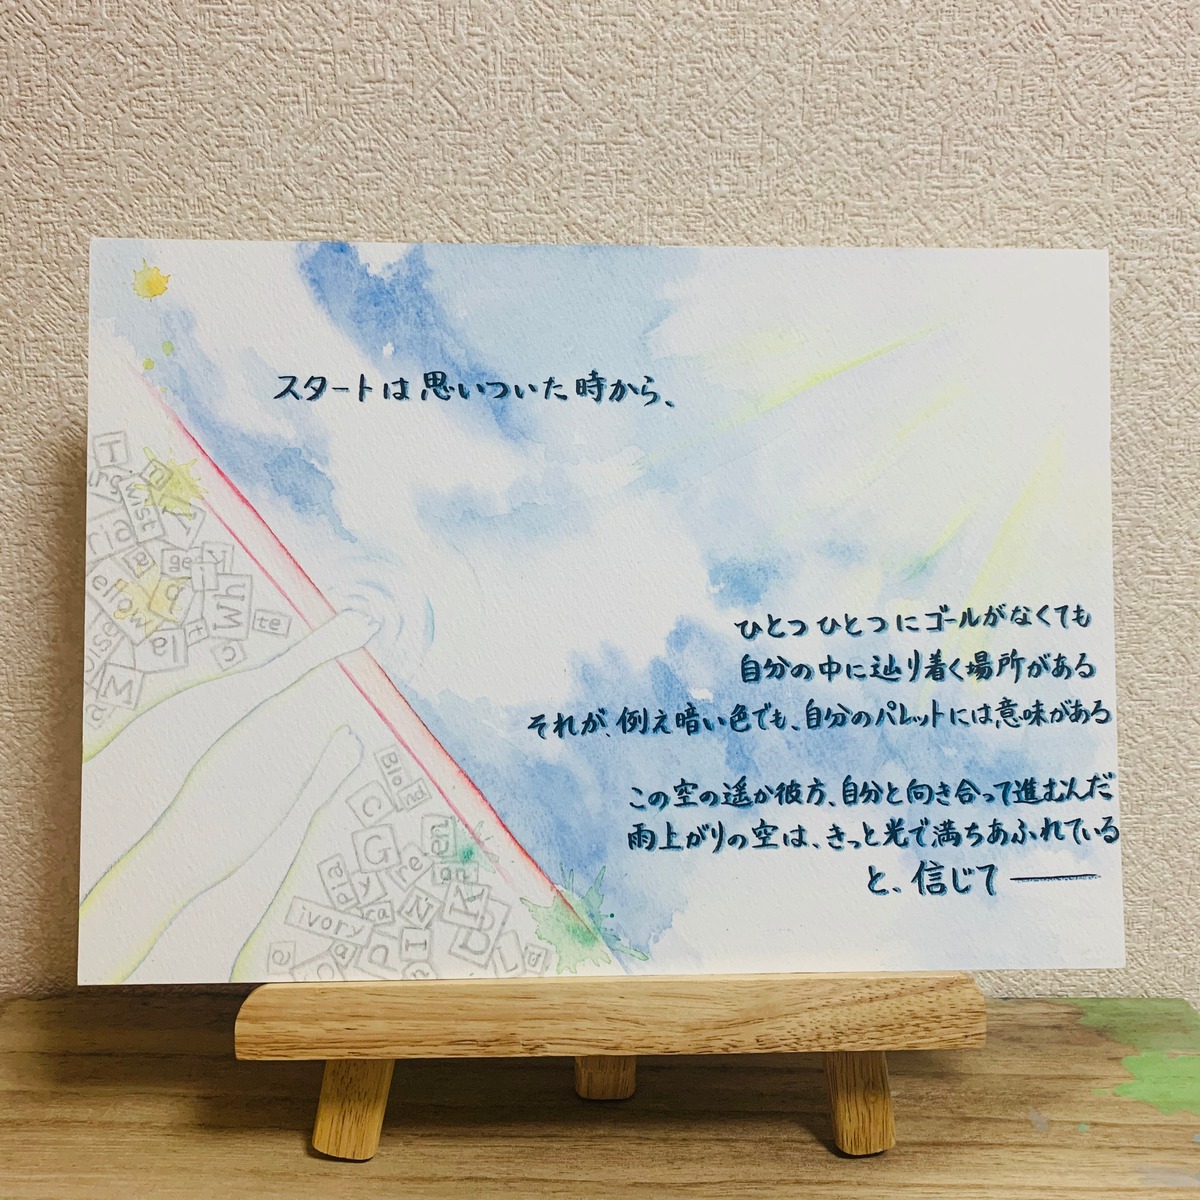 スタートは思いついた時から、
ひとつひとつにゴールがなくても
自分の中に辿り着く場所がある
それが、例え暗い色でも、自分のパレットには意味がある
この空の遥か彼方、自分と向き合って進むんだ
雨上がりの空は、きっと光で満ちあふれている
と、信じて――
wist
ellow
te
Blond
Green
ivory